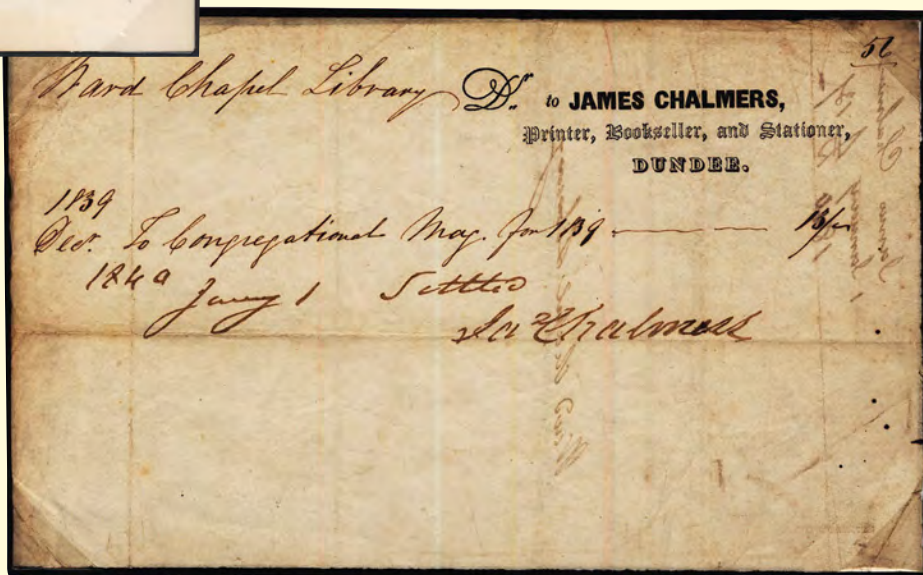 51
Ward Chapel Library Dr. to JAMES CHALMERS,
Printer, Bookseller, and Stationer,
DUNDEE.
1839
Decr. To Congregational Mag. for 1839
1840
Jany 1 Settled
Jas Chalmers